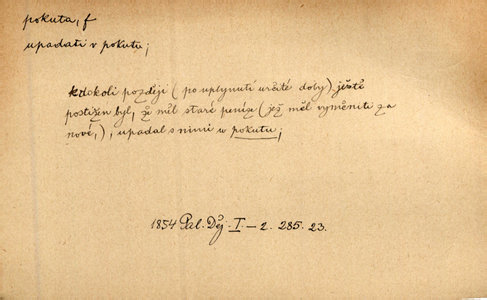 pokuta, f
upadati v pokutu;
kdokoli později (po uplynutí určité doby) ještě
postižen byl, že měl staré peníze (jež měl vyměniti za
nové,), upadal s nimi v pokutu;
1854 Pal. Děj. I.–2. 285. 23.